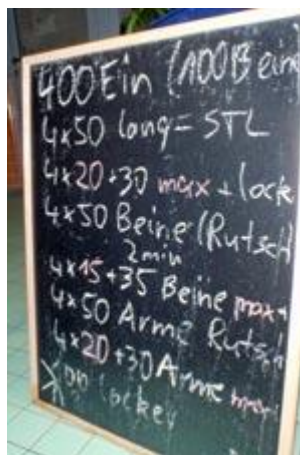 400 Ein (100 Beine
4x50 lang = STL
4x20+30 max + lock
4x50 Beine (Rutsch
2min
4x15+35 Beine max+
4x50 Arme Rutsch
4x20+30 Arme max
locker